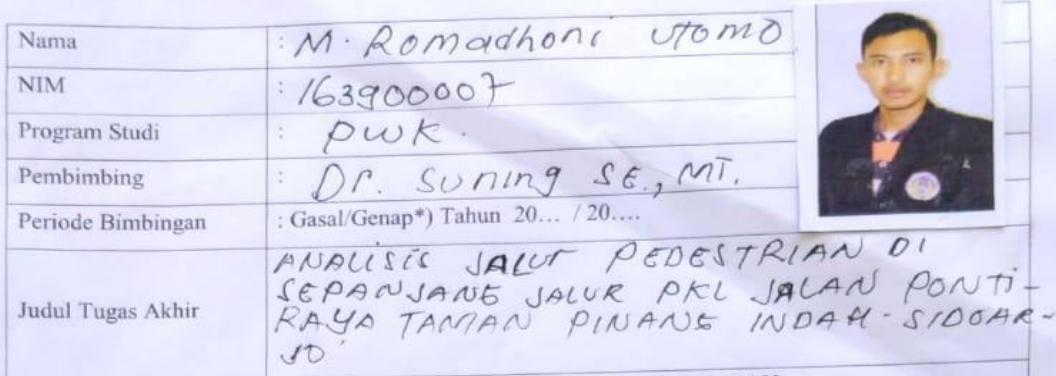 Nama : M. Romadhoni UTOMO
NIM : 163900007
Program Studi : PWK.
Pembimbing : Dr. Suning SE., MT.
Periode Bimbingan : Gasal/Genap*) Tahun 20... / 20....
Judul Tugas Akhir : ANALISIS JALUR PEDESTRIAN DI
SEPANJANG JALUR PKL JALAN PONTI-
RAYA TAMAN PINANG INDAH - SIDOAR-
JO